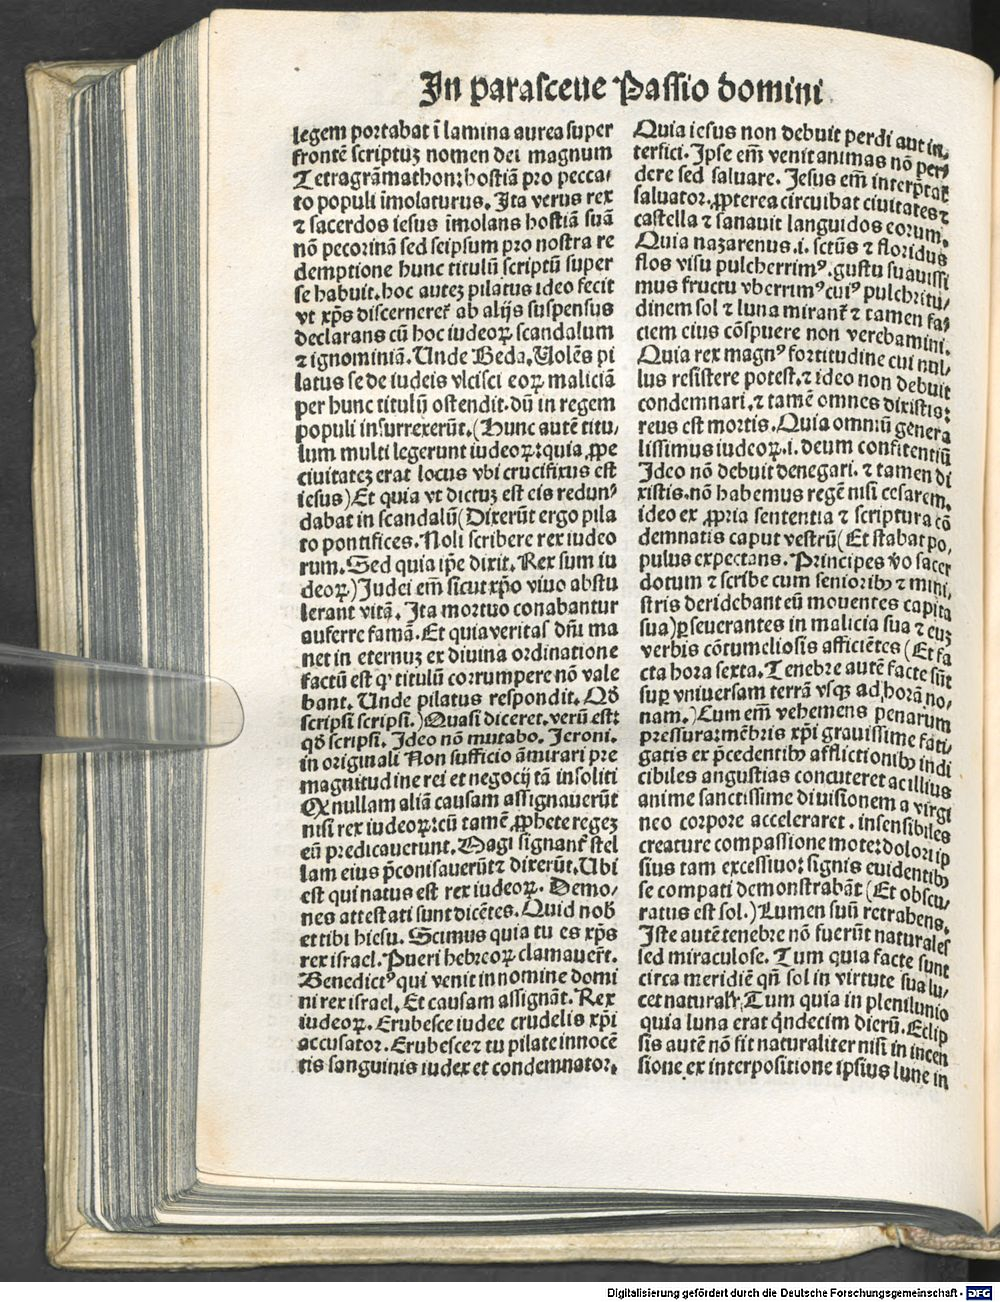 In parasceue Passio domini
legem portabat ī lamina aurea super
frontē scriptuꝫ nomen dei magnum
Tetragrāmathon: hostiā pro pecca⸗
to populi īmolaturus. Ita verus rex
⁊ sacerdos iesus īmolans hostiā suā
nō pecorinā sed seipsum pro nostra re
demptione hunc titulū scriptū super
se habuit. hoc auteꝫ pilatus ideo fecit
vt xp̄s discerneret᷑ ab alijs suspensus
declarans cū hoc iudeoꝝ scandalum
⁊ ignominiā. Unde Beda. Uolēs pi
latus se de iudeis vlcisci eoꝝ maliciā
per hunc titulū ostendit. dū in regem
populi insurrexerūt. (Hunc autē titu⸗
lum multi legerunt iudeoꝝ: quia ꝓpe
ciuitateꝫ erat locus vbi crucifixus est
iesus) Et quia vt dictuꝫ est eis redun⸗
dabat in scandalū (Dixerūt ergo pila
to pontifices. Noli scribere rex iudeo
rum. Sed quia ip̄e dixit. Rex sum iu
deoꝝ.) Judei em̄ sicut xp̄o viuo abstu
lerant vitā. Ita mortuo conabantur
auferre famā. Et quia veritas dn̄i ma
net in eternuꝫ ex diuina ordinatione
factū est qꝰ titulū corrumpere nō vale
bant. Unde pilatus respondit. Qd̄
scripsi scripsi.) Quasi diceret. verū est:
qd̄ scripsi. Ideo nō mutabo. Jeroni.
in originali Non sufficio āmirari pre
magnitudine rei et negocij tā insoliti
Ex nullam aliā causam assignauerūt
nisi rex iudeoꝝ: cū tamē ꝓphete regeꝫ
eū predicauerunt. Magi signant᷑ stel
lam eius p̄conisauerūt ⁊ dixerūt. Ubi
est qui natus est rex iudeoꝝ. Demo⸗
nes attestati sunt dicētes. Quid nob̄
et tibi hiesu. Scimus quia tu es xp̄s
rex israel. Pueri hebreoꝝ clamauer̄t.
Benedictꝰ qui venit in nomine domi
ni rex israel. Et causam assignāt. Rex
iudeoꝝ. Erubesce iudee crudelis xp̄i
accusator. Erubesce ⁊ tu pilate innocē
tis sanguinis iudex et condemnator.
Quia iesus non debuit perdi aut in⸗
terfici. Ipse em̄ venit animas nō per⸗
dere sed saluare. Jesus em̄ interp̄tat᷑
saluator. ꝓpterea circuibat ciuitates ⁊
castella ⁊ sanauit languidos eorum.
Quia nazarenus .i. sctūs ⁊ floridus
flos visu pulcherrimꝰ. gustu suauissi
mus fructu vberrimꝰ cuiꝰ pulchritu⸗
dinem sol ⁊ luna mirant᷑ ⁊ tamen fa⸗
ciem eius cōspuere non verebamini.
Quia rex magnꝰ fortitudine cui nul⸗
lus resistere potest. ⁊ ideo non debuit
condemnari. ⁊ tamē omnes dixistis:
reus est mortis. Quia omniū genera
lissimus iudeoꝝ .i. deum confitentiū
Ideo nō debuit denegari. ⁊ tamen di
xistis. nō habemus regē nisi cesarem.
ideo ex ꝓpria sententia ⁊ scriptura cō
demnatis caput vestrū (Et stabat po⸗
pulus expectans. Principes v̄o sacer
dotum ⁊ scribe cum seniorib⁹ ⁊ mini⸗
stris deridebant eū mouentes capita
sua) ꝑseuerantes in malicia sua ⁊ euꝫ
verbis cōtumeliosis afficiētes (Et fa
cta hora sexta. Tenebre autē facte sūt
suꝑ vniuersam terrā vsqꝫ ad horā no⸗
nam.) Cum em̄ vehemens penarum
pressura: mēbris xp̄i grauissime fati⸗
gatis ex p̄cedentib⁹ afflictionib⁹ indi
cibiles angustias concuteret ac illius
anime sanctissime diuisionem a virgi
neo corpore acceleraret. insensibiles
creature compassione mote: dolori ip
sius tam excessiuo: signis euidentib⁹
se compati demonstrabāt (Et obscu⸗
ratus est sol.) Lumen suū retrahens.
Iste autē tenebre nō fuerūt naturales
sed miraculose. Tum quia facte sunt
circa meridiē qn̄ sol in virtute sua lu⸗
cet naturalr̄. Tum quia in plenilunio
quia luna erat q̄ndecim dierū. Eclip
sis autē nō fit naturaliter nisi in incen
sione ex interpositione ipsius lune in
Digitalisierung gefördert durch die Deutsche Forschungsgemeinschaft - DFG